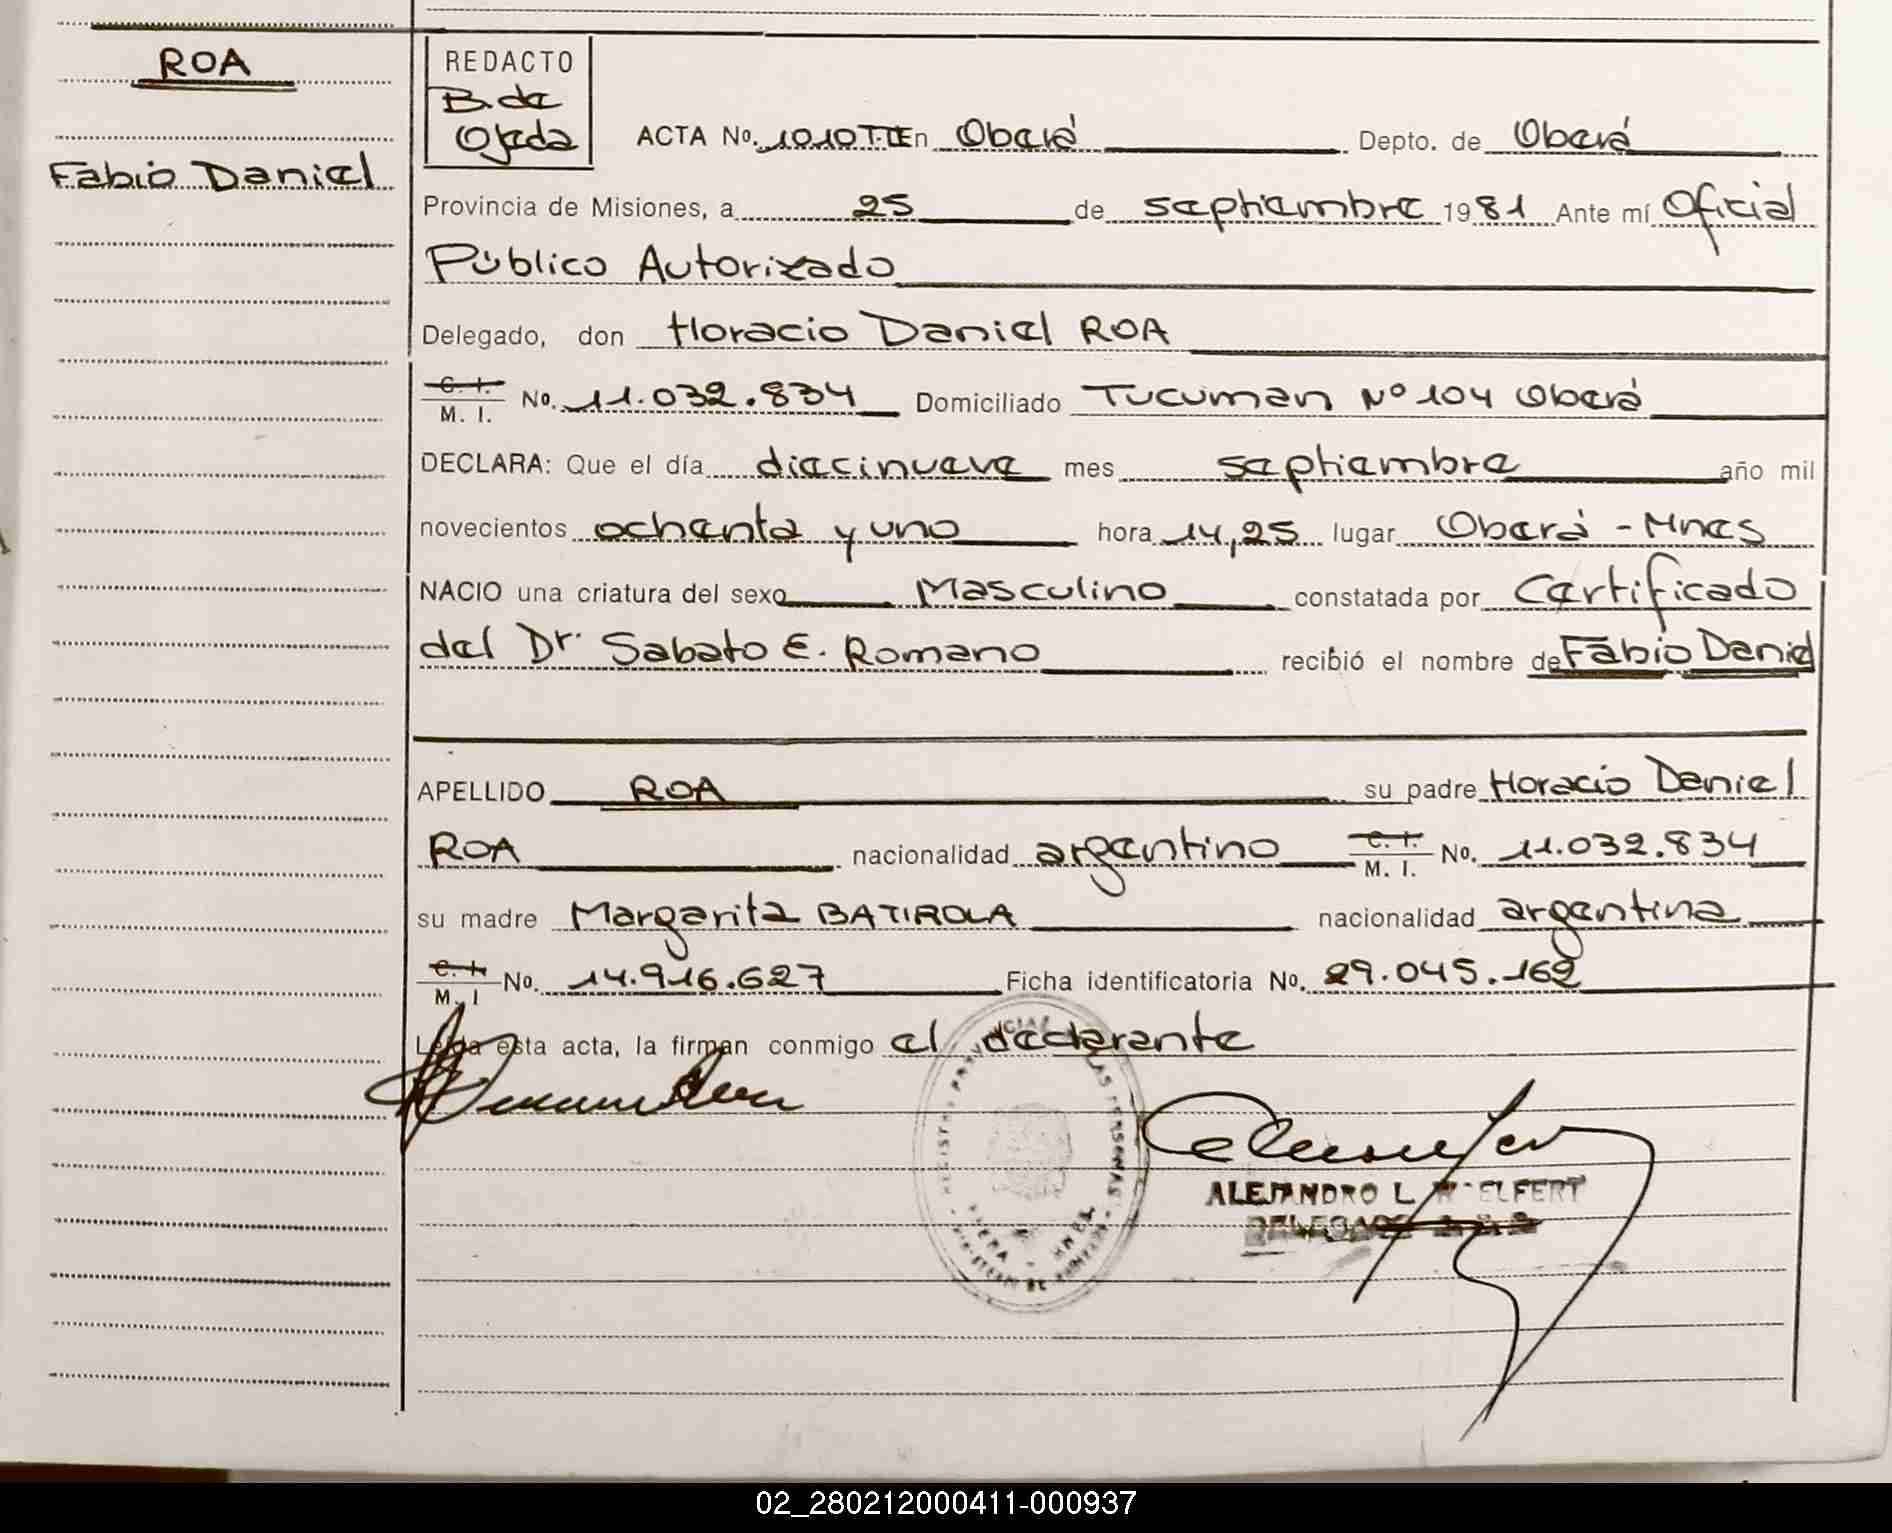 ROA
Fabio Daniel
REDACTO
B. de
Ojeda
ACTA No. 1010 T-II En Oberá Depto. de Oberá
Provincia de Misiones, a 25 de septiembre 1981 Ante mí Oficial
Público Autorizado
Delegado, don Horacio Daniel ROA
C. I.
M. I. No. 11.032.834 Domiciliado Tucuman Nº 104 Oberá
DECLARA: Que el día diecinueve mes septiembre año mil
novecientos ochenta y uno hora 14,25 lugar Oberá - Mnes
NACIO una criatura del sexo Masculino constatada por Certificado
del Dr. Sabato E. Romano recibió el nombre de Fabio Daniel
APELLIDO ROA su padre Horacio Daniel
ROA nacionalidad argentino C. I. M. I. No. 11.032.834
su madre Margarita BATIROLA nacionalidad argentina
C. I.
M. I No. 14.916.627 Ficha identificatoria No. 29.045.162
Leída esta acta, la firman conmigo el declarante
ALEJANDRO L.
DELEGADO
02_280212000411-000937